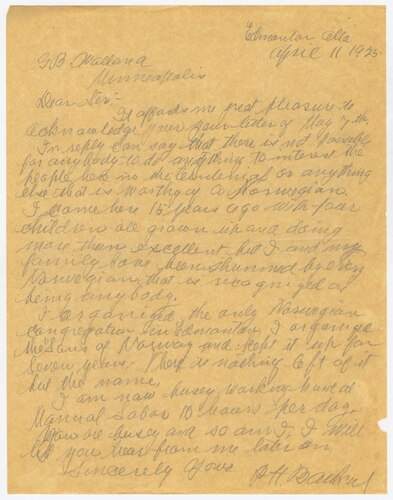 Edmonton Alta
April 11 1925
G.B. Wallana
Minneapolis
Dear Sir:-
It affords me great pleasure to
acknowledge your letter of May 7th.
In reply can say that there is not possible
for anybody to do anything to interest the
people here no the Centenial or anything
else that is worthy of a Norwegian.
I came here 15 years ago with four
children all grown up and doing
more then excellent but I and my
family have been shunned by every
Norwegian that is recognized as
being anybody.
I organized the only Norwegian
congregation in Edmonton, I organized
the Sons of Norway and kept it up for
seven years. There is nothing left of it
but the name.
I am now busey working hard at
Manual Labor 10 hours per day.
You are busey and so am I, I will
let you hear from me later on.
Sincerely Yours